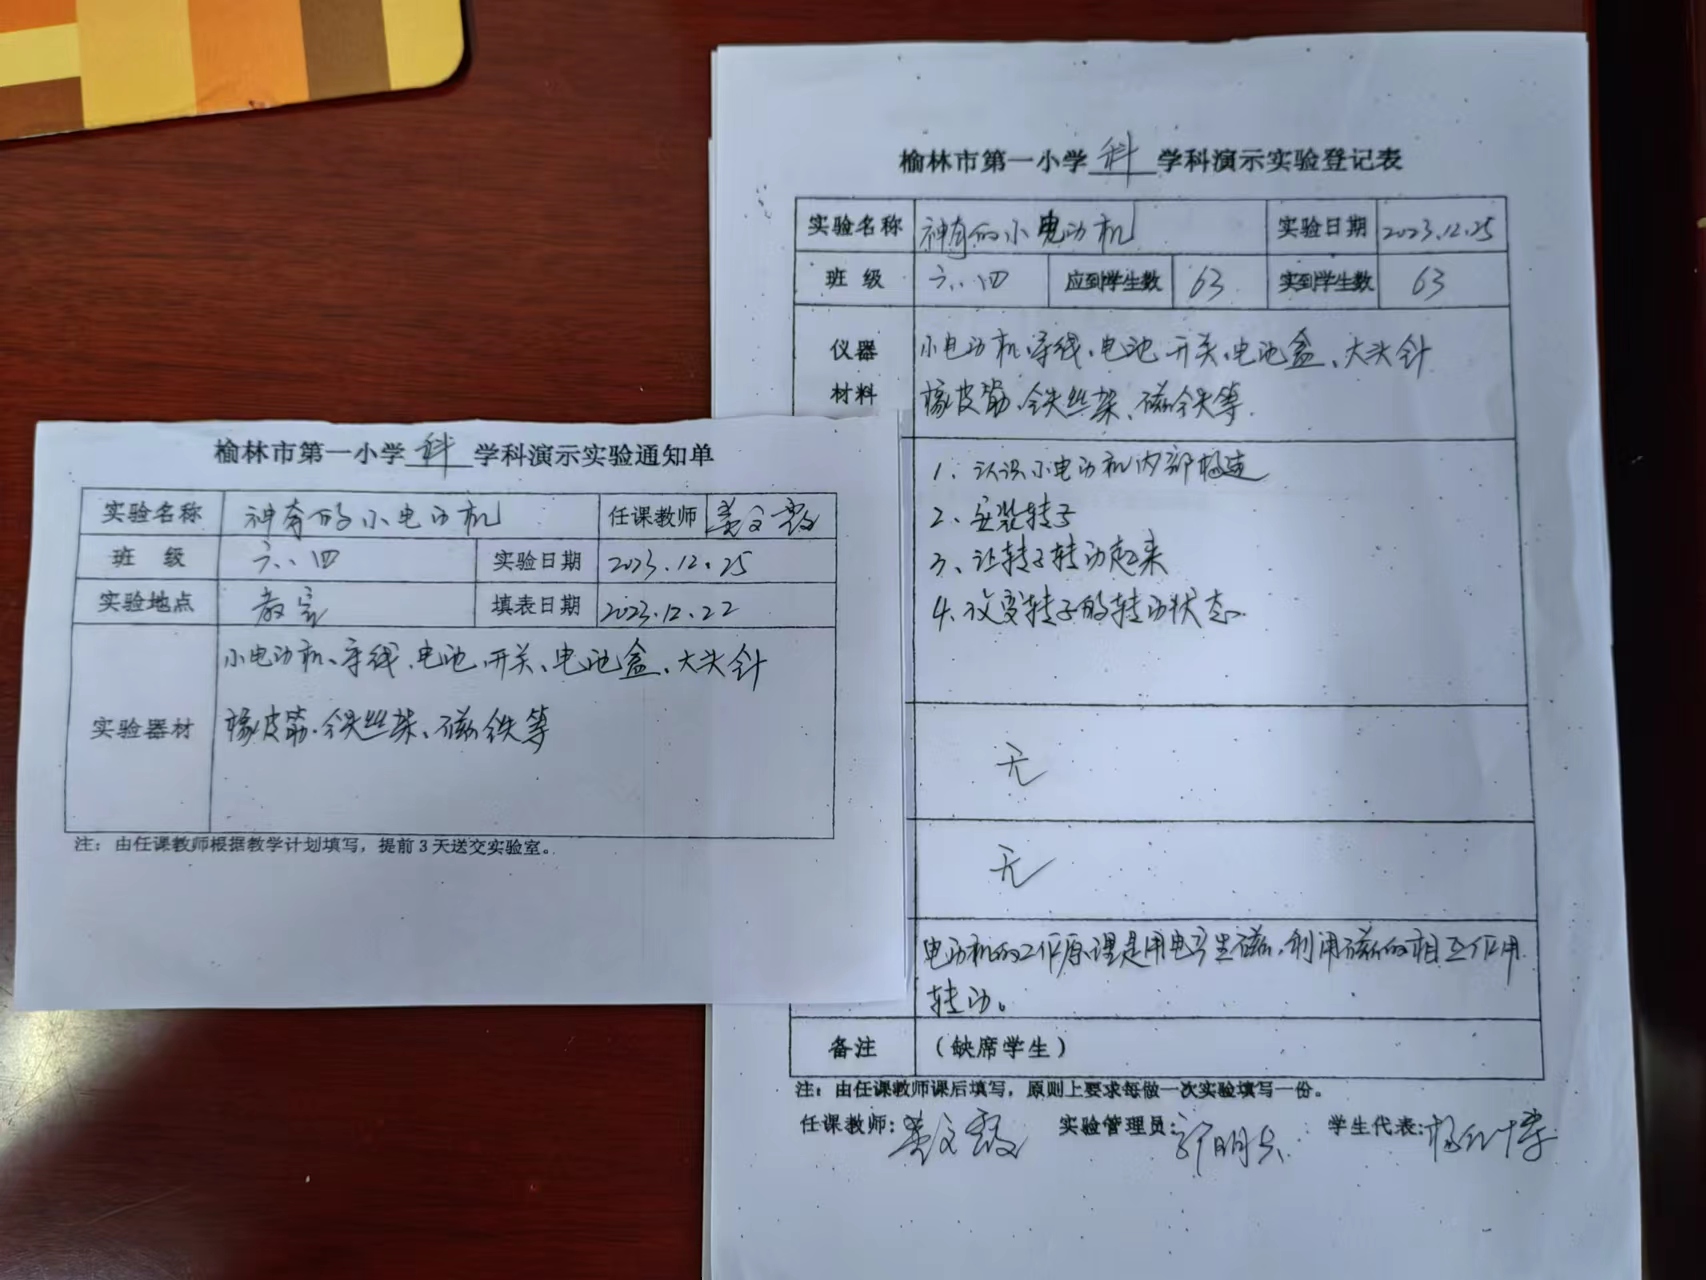 榆林市第一小学 科 学科演示实验通知单
实验名称 神奇的小电动机 任课教师
班 级 六.四 实验日期 2023.12.25
实验地点 教室 填表日期 2023.12.22
实验器材
小电动机、导线、电池、开关、电池盒、大头针
橡皮筋、铁丝架、磁铁等
注：由任课教师根据教学计划填写，提前3天送交实验室。
榆林市第一小学 科 学科演示实验登记表
实验名称 神奇的小电动机 实验日期 2023.12.25
班 级 六.四 应到学生数 63 实到学生数 63
仪器 小电动机、导线、电池、开关、电池盒、大头针
材料 橡皮筋、铁丝架、磁铁等.
1、认识小电动机内部构造
2、安装转子
3、让转子转动起来
4、改变转子的转动状态
无
无
电动机的工作原理是用电产生磁，利用磁的相互作用
转动。
备注 （缺席学生）
注：由任课教师课后填写，原则上要求每做一次实验填写一份。
任课教师: 实验管理员: 学生代表: